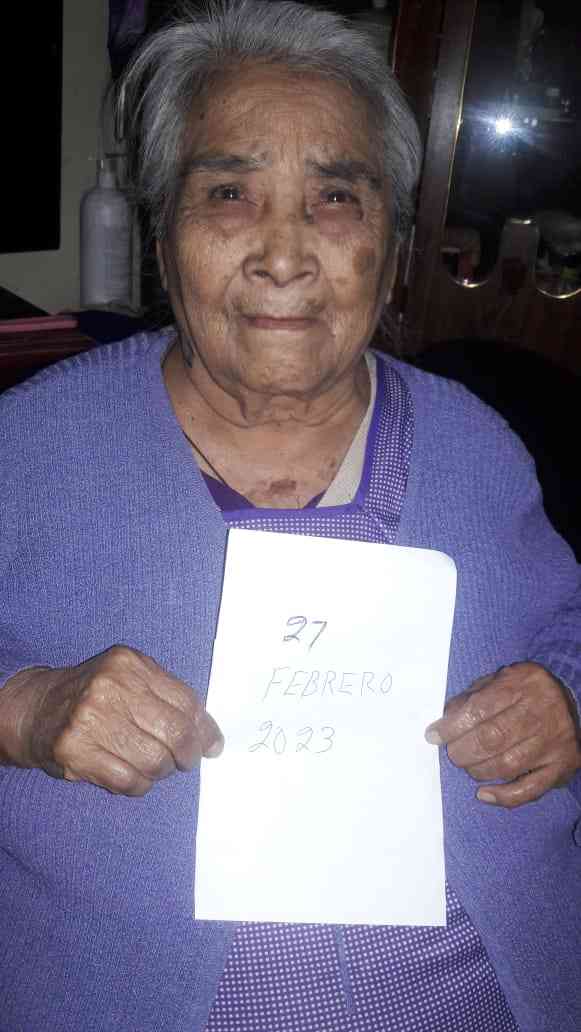 27
FEBRERO
2023